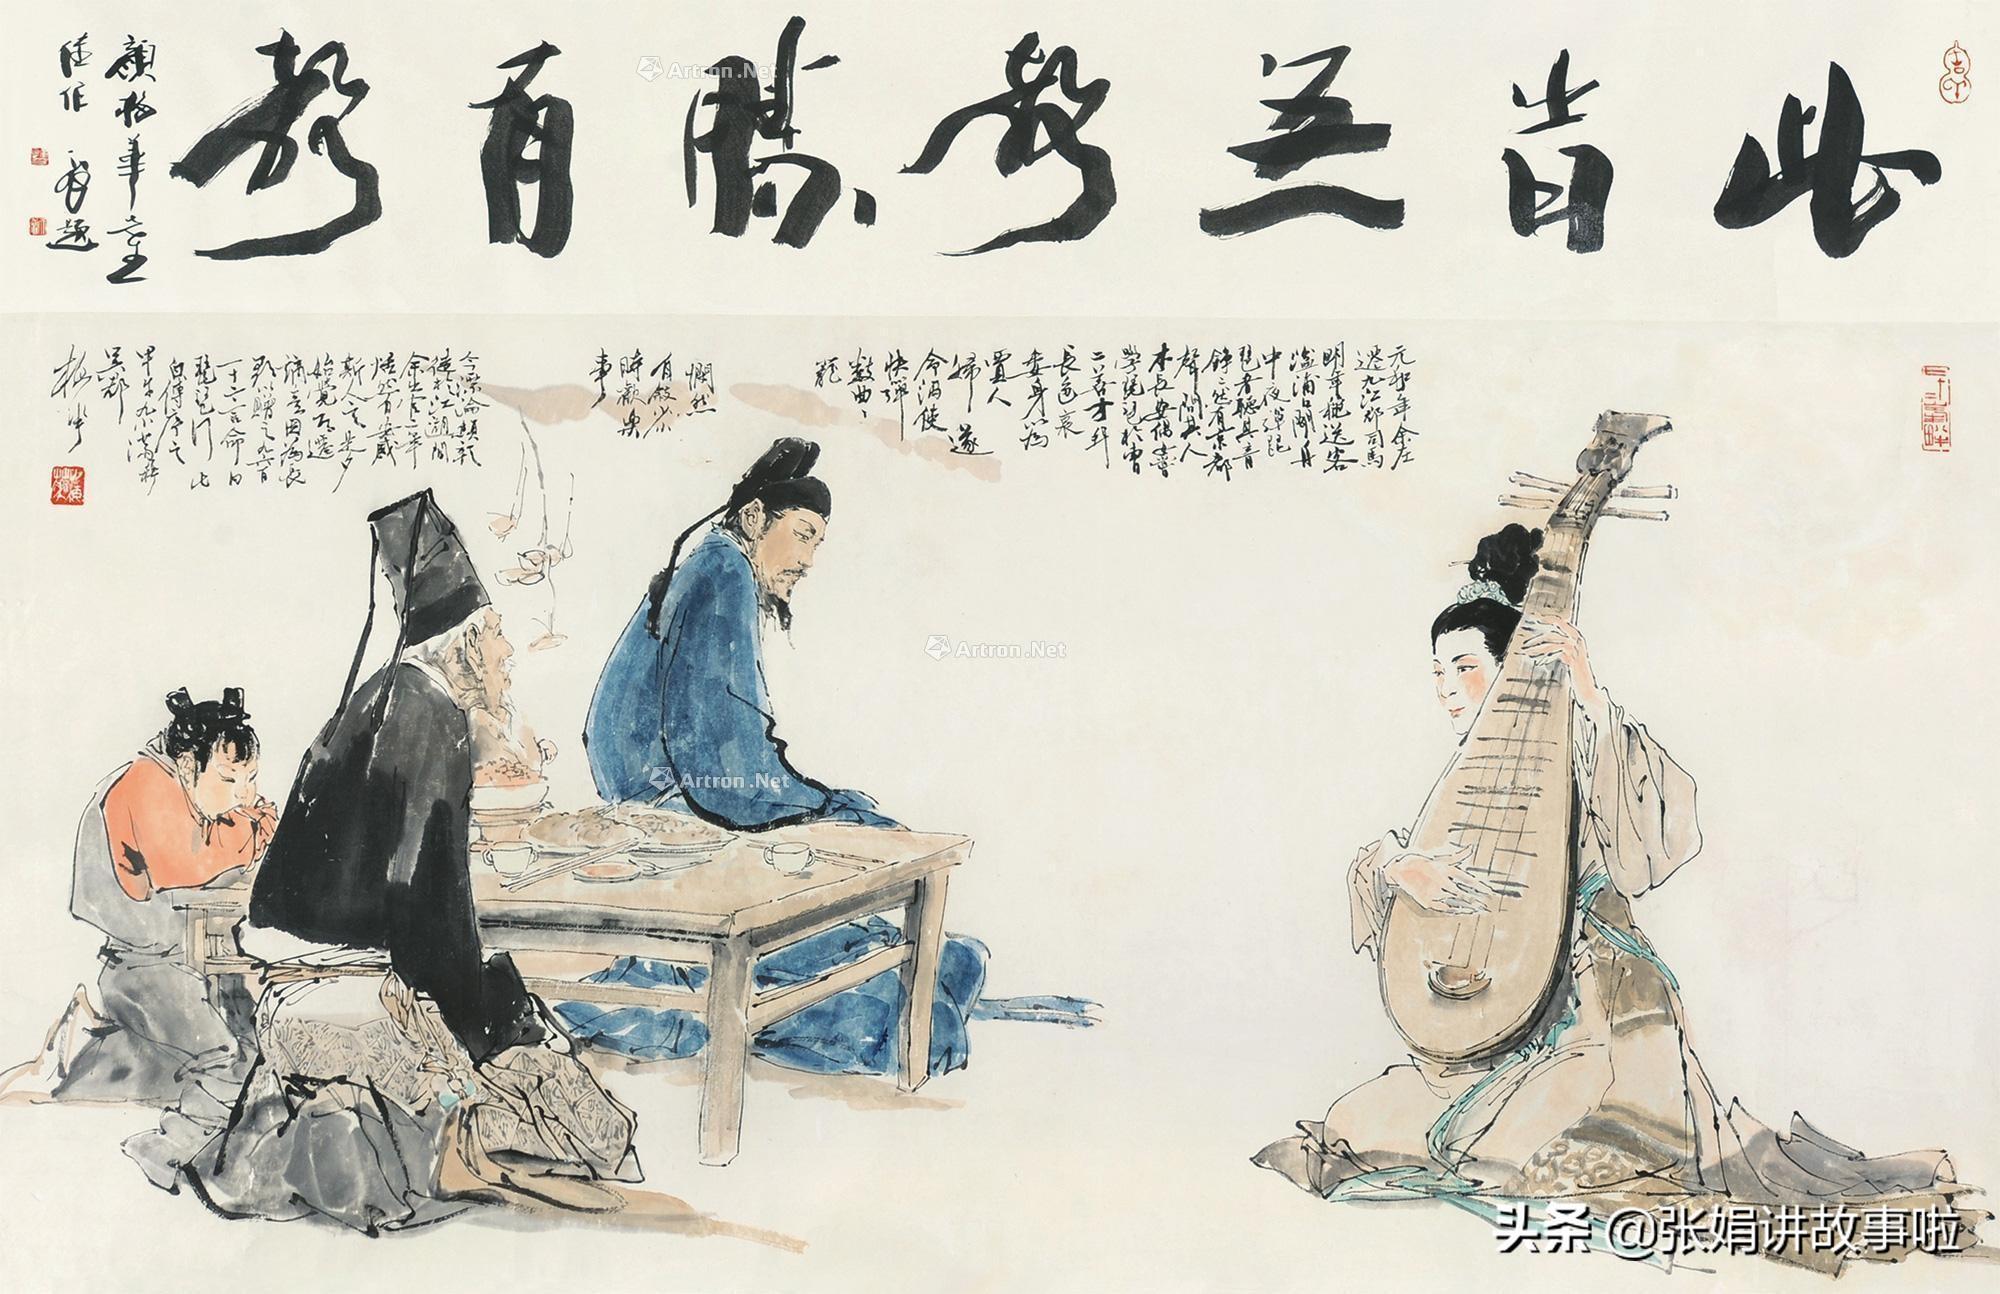 此旹无聲勝有聲
顏梅華先生
佳作
元和十年余左
遷九江郡司馬
明年秋送客
湓浦口聞舟
中夜彈琵
琶者聽其音
錚錚然有京都
聲問其人
本長安倡
學琵琶於曹
二善才年
長色衰
委身為
賈人
婦遂
命酒使
快彈
數曲
罷
憫然
自敘少
時歡樂
事
今漂淪
徙於江湖間
余出官二年
恬然自安感
斯人言是夕
始覺有遷
謫意因為長
歌以贈之凡六百
一十六言命曰
琵琶行
梅華
Artron.Net
Artron.Net
Artron.Net
头条 @张娟讲故事啦